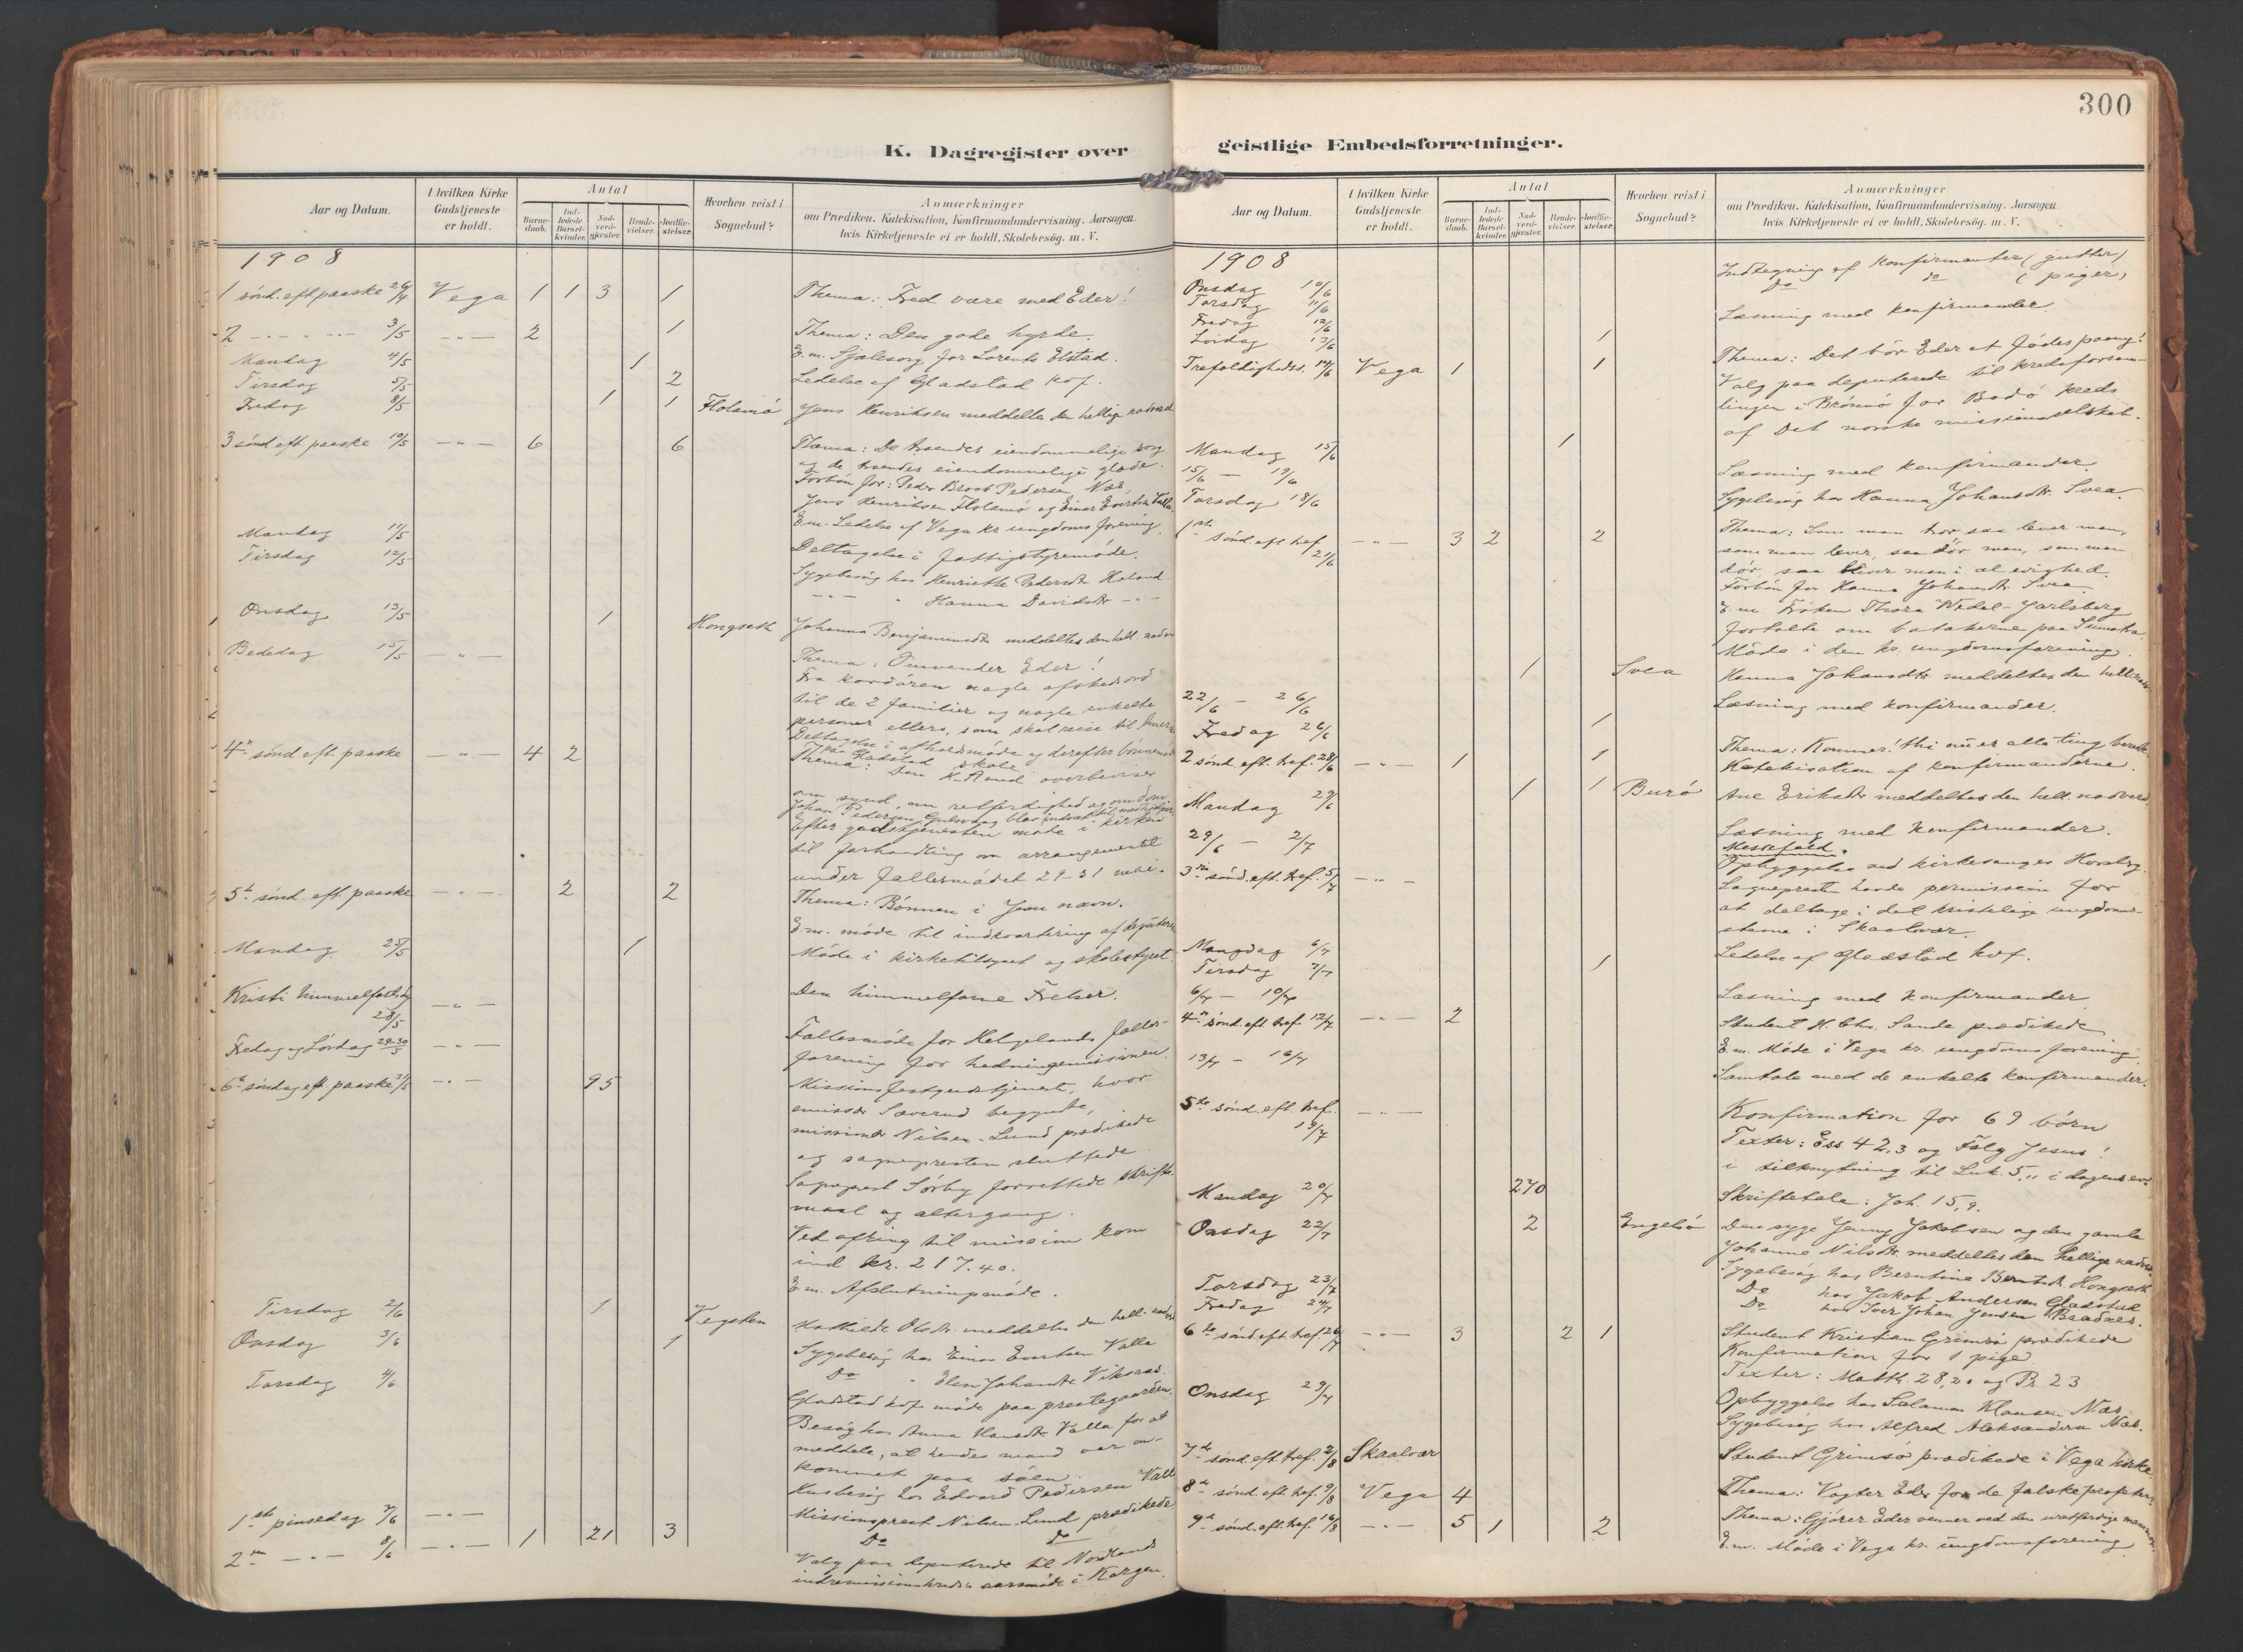 300
K. Dagregister over
geistlige Embedsforretninger.
Aar og Datum.
I hvilken Kirke Gudstjeneste er holdt.
Antal
Barne-daab.
Ind-ledede Barsel-kvinder.
Nad-verd-gjester.
Brude-vielser.
Jordfæ-stelser.
Hvorhen reist i Sognebud?
Anmærkninger
om Prædiken, Katekisation, Konfirmandundervisning, Aarsagen,
hvis Kirketjeneste ei er holdt, Skolebesøg, m. V.
1908
1 sønd. eft paaske 26/4 Vega 1 1 3 1 Thema: Fred være med Eder!
2 -"- " -"- 3/5 -"- 2 1 Thema: Den gode hyrde.
E.m. Sjælesorg for Lorents Elstad.
Mandag 4/5 1
Tirsdag 5/5 2 Ledelse af Gladstad kof.
Fredag 8/5 1 1 Flotemø Jens Henriksen meddeltes den hellige nadverd
3 sønd eft paaske 10/5 -"- 6 6 Thema: De troendes eiendommelige sorg
og de troendes eiendommelige glæde.
Forbøn for: Peder Broat Pedersen Næs,
Jens Henriksen Flotemø og Einar Evertsen Valla
E.m. Ledelse af Vega kr. ungdomsforening.
Mandag 11/5 Deltagelse i fattigstyremøde.
Tirsdag 12/5 Sygebesøg hos Henriette Pedersdtr Holand
-"- " Hanna Davidsdtr -"-
Onsdag 13/5 1 Hongseth Johanna Benjaminsdtr meddeltes den hell. nadv
Bededag 15/5 -"- Thema: Omvender Eder!
Fra kordøren nogle afskedsord
til de 2 familier og nogle enkelte
personer ellers, som skal reise til Amer
Deltagelse i afholdsmøde og derefter bønnemøde
paa Gladstad skole
4n sønd eft paaske -"- 4 2 Thema: Den H. Aand overbeviser
om synd, om retfærdighed og om dom.
Efter gudstjenesten møde i kirken
til forhandling om arrangementet
under fællesmødet 29-31 mai.
5te sønd. eft. paaske -"- 2 2 Thema: Bønnen i Jesu navn.
E.m. møde til indkvartering af deputere
Mandag 25/5 1 Møde i kirketilsynet og skolestyret
Kristi himmelfartsdag 28/5 -"- Den himmelfarne Frelser.
Fredag og Lørdag 29-30/5 -"- Fællesmøde for Helgelands fælles-
forening for hedningemissionen.
6te søndag eft. paaske 31/5 -"- 95 Missionsfestgudstjeneste, hvor
emissær Sæverud begyndte,
missionær Nilsen-Lund prædikede
og sognepresten sluttede.
Sogneprest Sørby forrettede skrifte-
maal og altergang.
Ved ofring til mission kom
ind kr. 217.40.
E.m. Afslutningsmøde.
Tirsdag 2/6 1 Vegsten Mathilde Olsdtr. meddeltes den hell. nadverd
Onsdag 3/6 1 Sygebesøg hos Einar Evertsen Valla
Do " Elen Johansdtr Viksaas.
Torsdag 4/6 Gladstad kof. møde paa prestegaarden.
Besøg hos Anna Hansdtr Valla for at
meddele, at hendes mand var om-
kommet paa søen.
Husbesøg hos Edvard Pedersen Valla
1ste pinsedag 7/6 Missionsprest Nilsen-Lund prædikede
2en -"- 8/6 -"- 1 21 3 Do Do
Valg paa deputerede til Nordlands
indremissionskredses aarsmøde i Korgen.
Aar og Datum.
I hvilken Kirke Gudstjeneste er holdt.
Antal
Barne-daab.
Ind-ledede Barsel-kvinder.
Nad-verd-gjester.
Brude-vielser.
Jordfæ-stelser.
Hvorhen reist i Sognebud?
Anmærkninger
om Prædiken, Katekisation, Konfirmandundervisning, Aarsagen,
hvis Kirketjeneste ei er holdt, Skolebesøg, m. V.
1908
Onsdag 10/6 Indtegning af konfirmanter (gutter)
Torsdag 11/6 Do do (piger)
Fredag 12/6 Læsning med konfirmander.
Lørdag 13/6 1
Trefoldighedss. 14/6 Vega 1 1 Thema: Det bør Eder at fødes paany!
Valg paa deputerede til kredsforsam-
lingen i Brønnø for Bodø kreds
af Det norske missionsselskab.
Mandag 15/6 1
15/6 - 19/6 Læsning med konfirmander.
Torsdag 18/6 Sygebesøg hos Hanna Johansdtr. Svea.
1ste sønd. eft tref 21/6 -"- 3 2 2 Thema: Som man tror, saa lever man,
som man lever, saa dør man, som man
dør, saa bliver man i al evighed.
Forbøn for Hanna Johansdtr Svea.
E.m. Frøken Thora Wedel-Jarlsberg
fortalte om batakerne paa Sumatra.
Møde i den kr. ungdomsforening.
1 Svea Hanna Johansdtr. meddeltes den hell. nadv
22/6 - 26/6 Læsning med konfirmander.
Fredag 26/6 1
2 sønd. eft. tref. 28/6 -"- 1 1 Thema: Kommer! thi nu er alle ting beredt
Katekisation af konfirmanderne.
Mandag 29/6 1 1 Burø Ane Eriksdtr meddeltes den hell. nadverd.
29/6 - 2/7 Læsning med konfirmander.
3die sønd. eft. tref. 5/7 -"- Messefald.
Opbyggelse ved kirkesanger Horsberg.
Sognepresten havde permission for
at deltage i det kristelige ungdoms-
stevne i Skaalvær.
Mangdag 6/7 Ledelse af Gladstad kof.
Tirsdag 7/7 1
6/7 - 10/7 Læsning med konfirmander
4de sønd. eft tref. 12/7 -"- 2 Student H. Chr. Sande prædikede
E.m. Møde i Vega kr. ungdomsforening.
13/7 - 16/7 Samtale med de enkelte konfirmander.
5te sønd. eft. tref. 19/7 -"- Konfirmation for 69 børn
Texter: Ess 42,3 og Følg Jesus!
i tilknytning til Luk. 5,11 i dagens ev.
Mandag 20/7 270 Skriftetale: Joh. 15,9.
Onsdag 22/7 2 Engelsø Den syge Jenny Jakobsen og den gamle
Johanne Nilsdtr. meddeltes den hellige nadv
Sygebesøg hos Berntine Berntsdtr. Hongseth
Torsdag 23/7 Do hos Jakob Andersen Gladstad
Fredag 24/7 Do hos Iver Johan Jensen Braanes.
6te sønd. eft tref. 26/7 -"- 3 2 1 Student Kristian Grimsø prædikede
Konfirmation for 1 pige
Texter: Matth. 28,20 og Pr. 23
Onsdag 29/7 Opbyggelse hos Salamon Klausen Næs.
Sygebesøg hos Alfred Aleksandersen Næs.
7de sønd. eft. tref. 2/8 Skaalvær Student Grimsø prædikede i Vega kirke.
8de sønd. eft tref. 9/8 Vega 4 Thema: Vogter Eder for de falske profeter,
9de sønd. eft. tref. 16/8 -"- 5 1 2 Thema: Gjører Eder venner ved den uretfærdige mammon.
E.m. Møde i Vega kr. ungdomsforening.